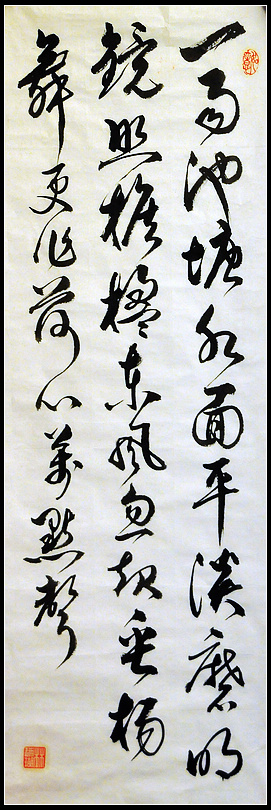 一雨池塘水面平淡磨明
鏡照檐楹東風忽起垂楊
舞更作荷心萬點聲